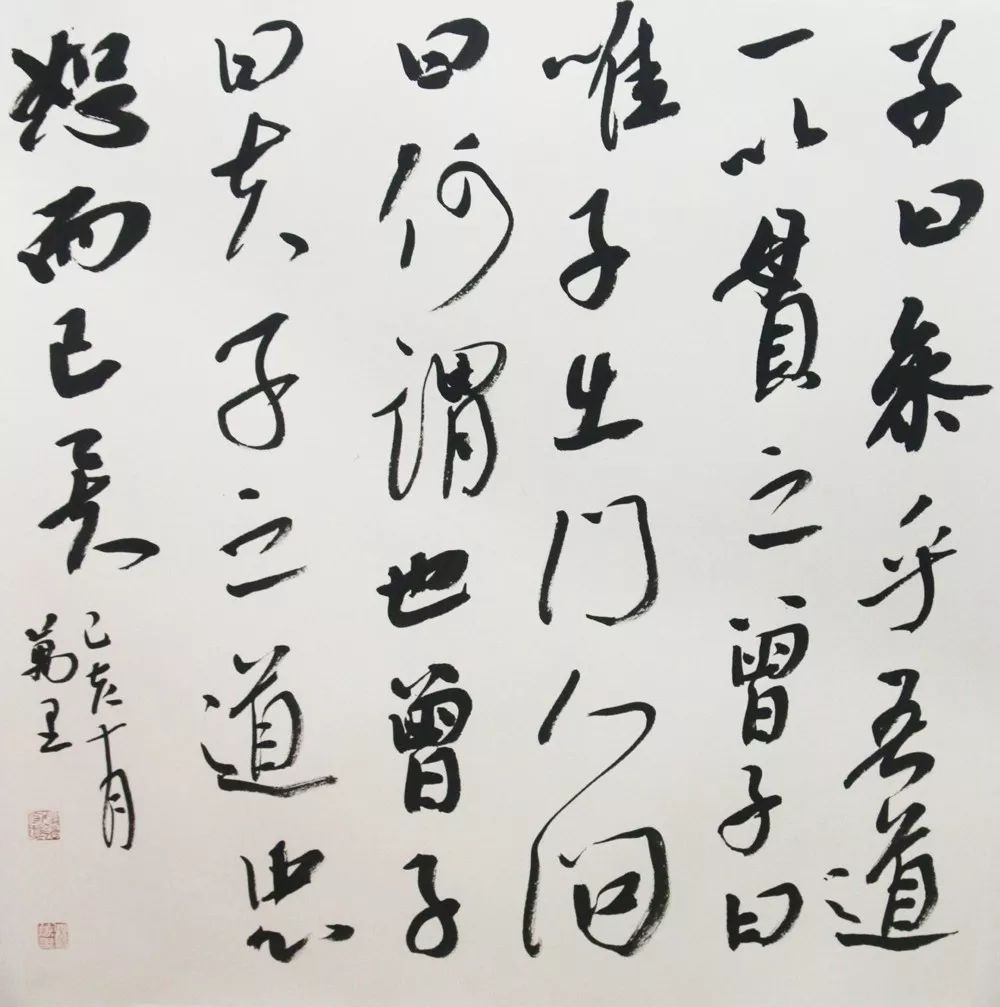 子曰參乎吾道
一以貫之曾子曰
唯子出門人問
曰何謂也曾子
曰夫子之道忠
恕而已矣
己亥十月